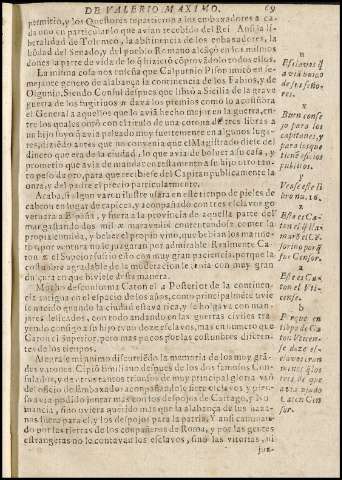 DE VALERIO MAXIMO. 69
permitio, y los Questores repartieron a los embaxadores a ca-
da uno en particular lo que avian recebido del Rei. Assi la li-
beralidad de Tolomeo, la abstinencia de los embaxadores, la
del Senado, y del pueblo Romano alcãçò en los mismos
dones la parte de vida de lo q̃ hizo
La misma cosa nos enseña que Calpurnio Pison imitò en se-
mejante genero de alabança la continencia de los Fabios, y de
Ogunio. Siendo Consul despues que librò a Sicilia de la grave
guerra de los fugitivos n dava los premios como lo acostũbra
el General a aquellos que lo avia hecho mejor en la guerra, en-
tre los quales onrò con el titulo de una corona de tres libras a
un hijo suyo q̃ avia peleado muy fuertemente en algunos luga-
res, diziẽdo antes que no convenia que el Magistrado diesse del
dinero que era de la ciudad, lo que avia de bolver a su casa, y
prometio que avia de mandar en testamento a su hijo otro tan-
to peso de oro, para que recibiesse del Capitan publicamente la
onra, y del padre el precio particularmente.
Acabasi algun varon ilustre usara en este tiempo de pieles de
cabron en lugar de tapices, y acompañado con tres esclavos go-
vernara a España, y fuera a la provincia de aquella parte del
mar gastando dos mil maravedis contentandose comer la
propia comida, y beber el propio vino, que bebian los marine-
ros por ventura no le juzgaran por admirable. Realmente Ca-
ton el Superior sufrio esto con muy gran paciencia, porque la
costumbre agradable de la moderacion le tenia con muy gran
dulçura en que biviesse desta manera.
Mucho desconforma Caton el a Posterior de la continen-
cia antigua en el espacio de los años, como principalmẽte uvie-
se nacido quando la ciudad estava rica, y se holgava con man-
jares delicados, con todo andando en las guerras civiles tra-
yendo consigo a su hijo tuvo doze esclavos, mas en numero que
Caton el Superior, pero mas pocos por las costumbres diferen-
tes de los tiempos.
Alegrase el animo discurriẽdo la memoria de los muy grã-
des varones. Cipiõ Emiliano despues de los dos famosos Con-
sulados, y de otros tantos triunfos de muy principal gloria
oficio de Embaxador acompañandole siete esclavos, y pien-
so avia podido juntar mas con los despojos de Cartago, y Nu-
mancia, sino oviera querido mas que la alabança de sus haza-
ñas fuera para el, y los despojos para la patria. Y ansi caminan-
do por las tierras de los compañeros de Roma, y por las gentes
estrangeras no le contavan los esclavos, sino las vitorias, ni
jun-
n
Esclavos q̃
x
Buen conse
jo para los
capitanes, y
para los que
tienẽ oficios
publicos.
y
Vease este li
bro nu. 16.
z
Este es Ca-
ton
por q̃
fue Censor.
a
Este es Ca-
ton el Uti-
cense.
b
Porque en
tiẽpo de Ca-
ton Uticen-
se doze es-
clavos eran
menos q̃ los
tres de que
usava
Caton Cen
sor.